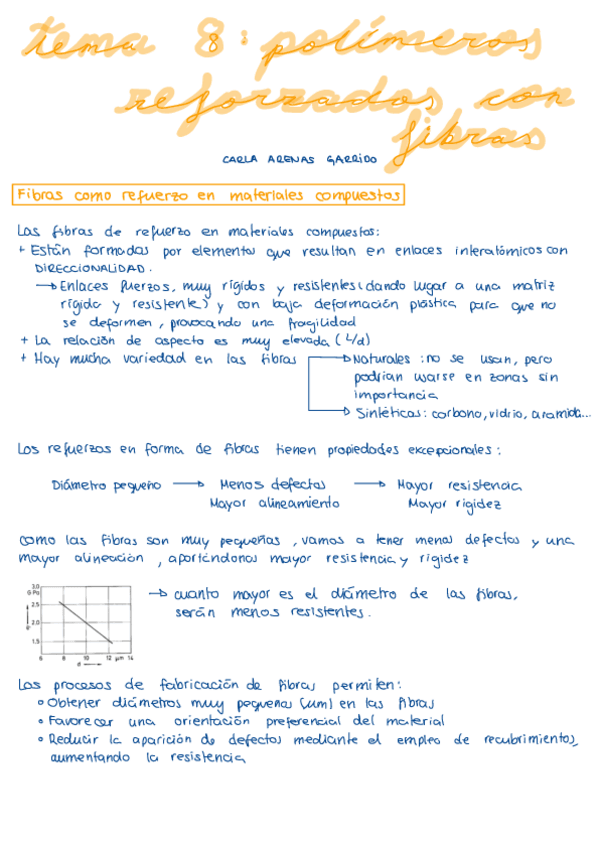 tema 8: polímeros
reforzados con
fibras
CARLA ARENAS GARRIDO
Fibras como refuerzo en materiales compuestos
Las fibras de refuerzo en materiales compuestos:
+ Están formadas por elementos que resultan en enlaces interatómicos con
DIRECCIONALIDAD.
→ Enlaces fuerzos, muy rígidos y resistentes (dando lugar a una matriz
rígida y resistente) y con baja deformación plástica para que no
se deformen, provocando una fragilidad
+ La relación de aspecto es muy elevada (L/d)
+ Hay mucha variedad en las fibras → Naturales: no se usan, pero
podrían usarse en zonas sin
importancia
→ Sintéticas: carbono, vidrio, aramida...
Los refuerzos en forma de fibras tienen propiedades excepcionales:
Diámetro pequeño → Menos defectos → Mayor resistencia
Mayor alineamiento Mayor rigidez
Como las fibras son muy pequeñas, vamos a tener menos defectos y una
mayor alineación, aportándonos mayor resistencia y rigidez
3,0
GPa
2,5
2,0
1,5
6 8 10 12 µm 14
d →
→ cuanto mayor es el diámetro de las fibras,
serán menos resistentes.
Los procesos de fabricación de fibras permiten:
○ Obtener diámetros muy pequeños (um) en las fibras
○ Favorecer una orientación preferencial del material
○ Reducir la aparición de defectos mediante el empleo de recubrimientos,
aumentando la resistencia